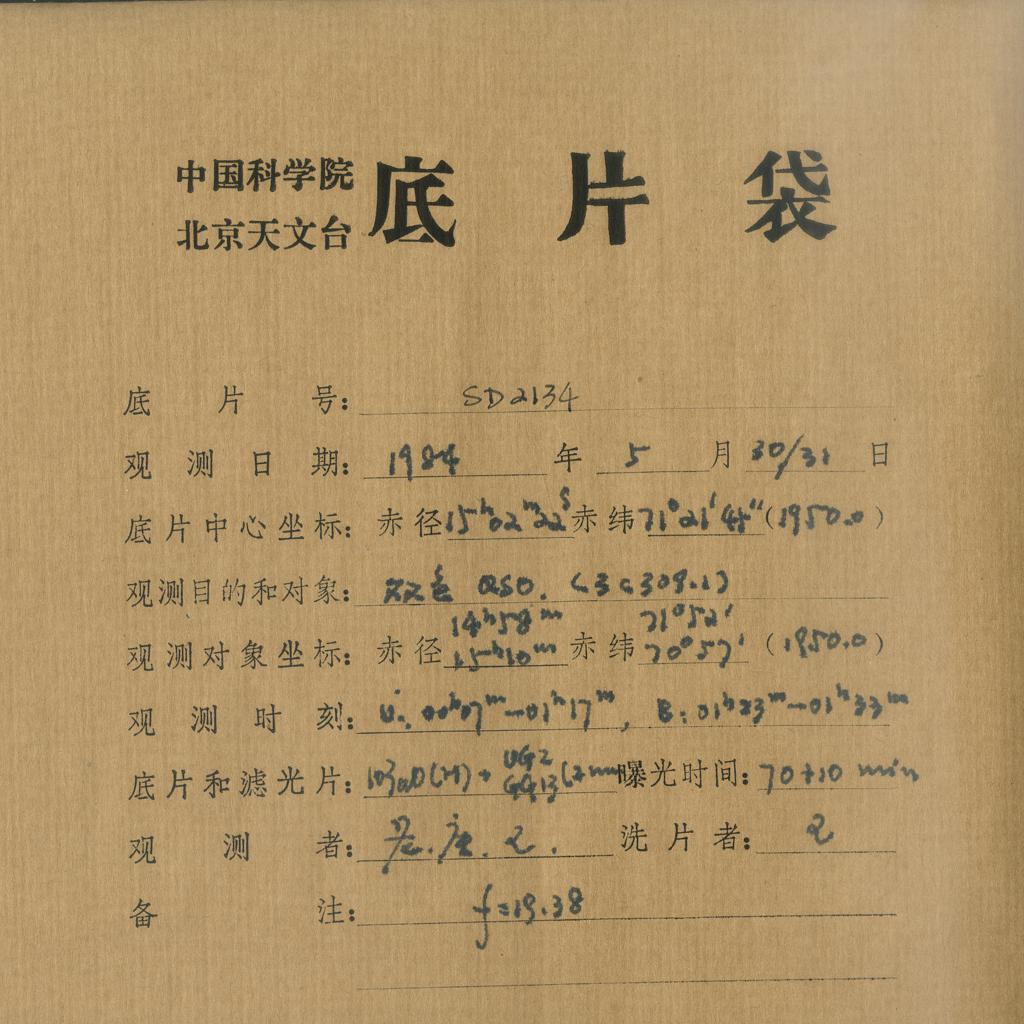 中国科学院
北京天文台
底片袋
底片号: SD2134
观测日期: 1984 年 5 月 30/31 日
底片中心坐标: 赤径 15ʰ02ᵐ32ˢ 赤纬 71°21′44″ (1950.0)
观测目的和对象: 双色 QSO. (3C309.1)
14ʰ58ᵐ 71°52′
观测对象坐标: 赤径 15ʰ10ᵐ 赤纬 70°57′ (1950.0)
观测时刻: U: 00ʰ07ᵐ—01ʰ17ᵐ, B: 01ʰ23ᵐ—01ʰ33ᵐ
UG2
底片和滤光片: 103aO(H) + GG13 (2mm 曝光时间: 70+10 min
观测者: 洗片者:
备注: f=19.38